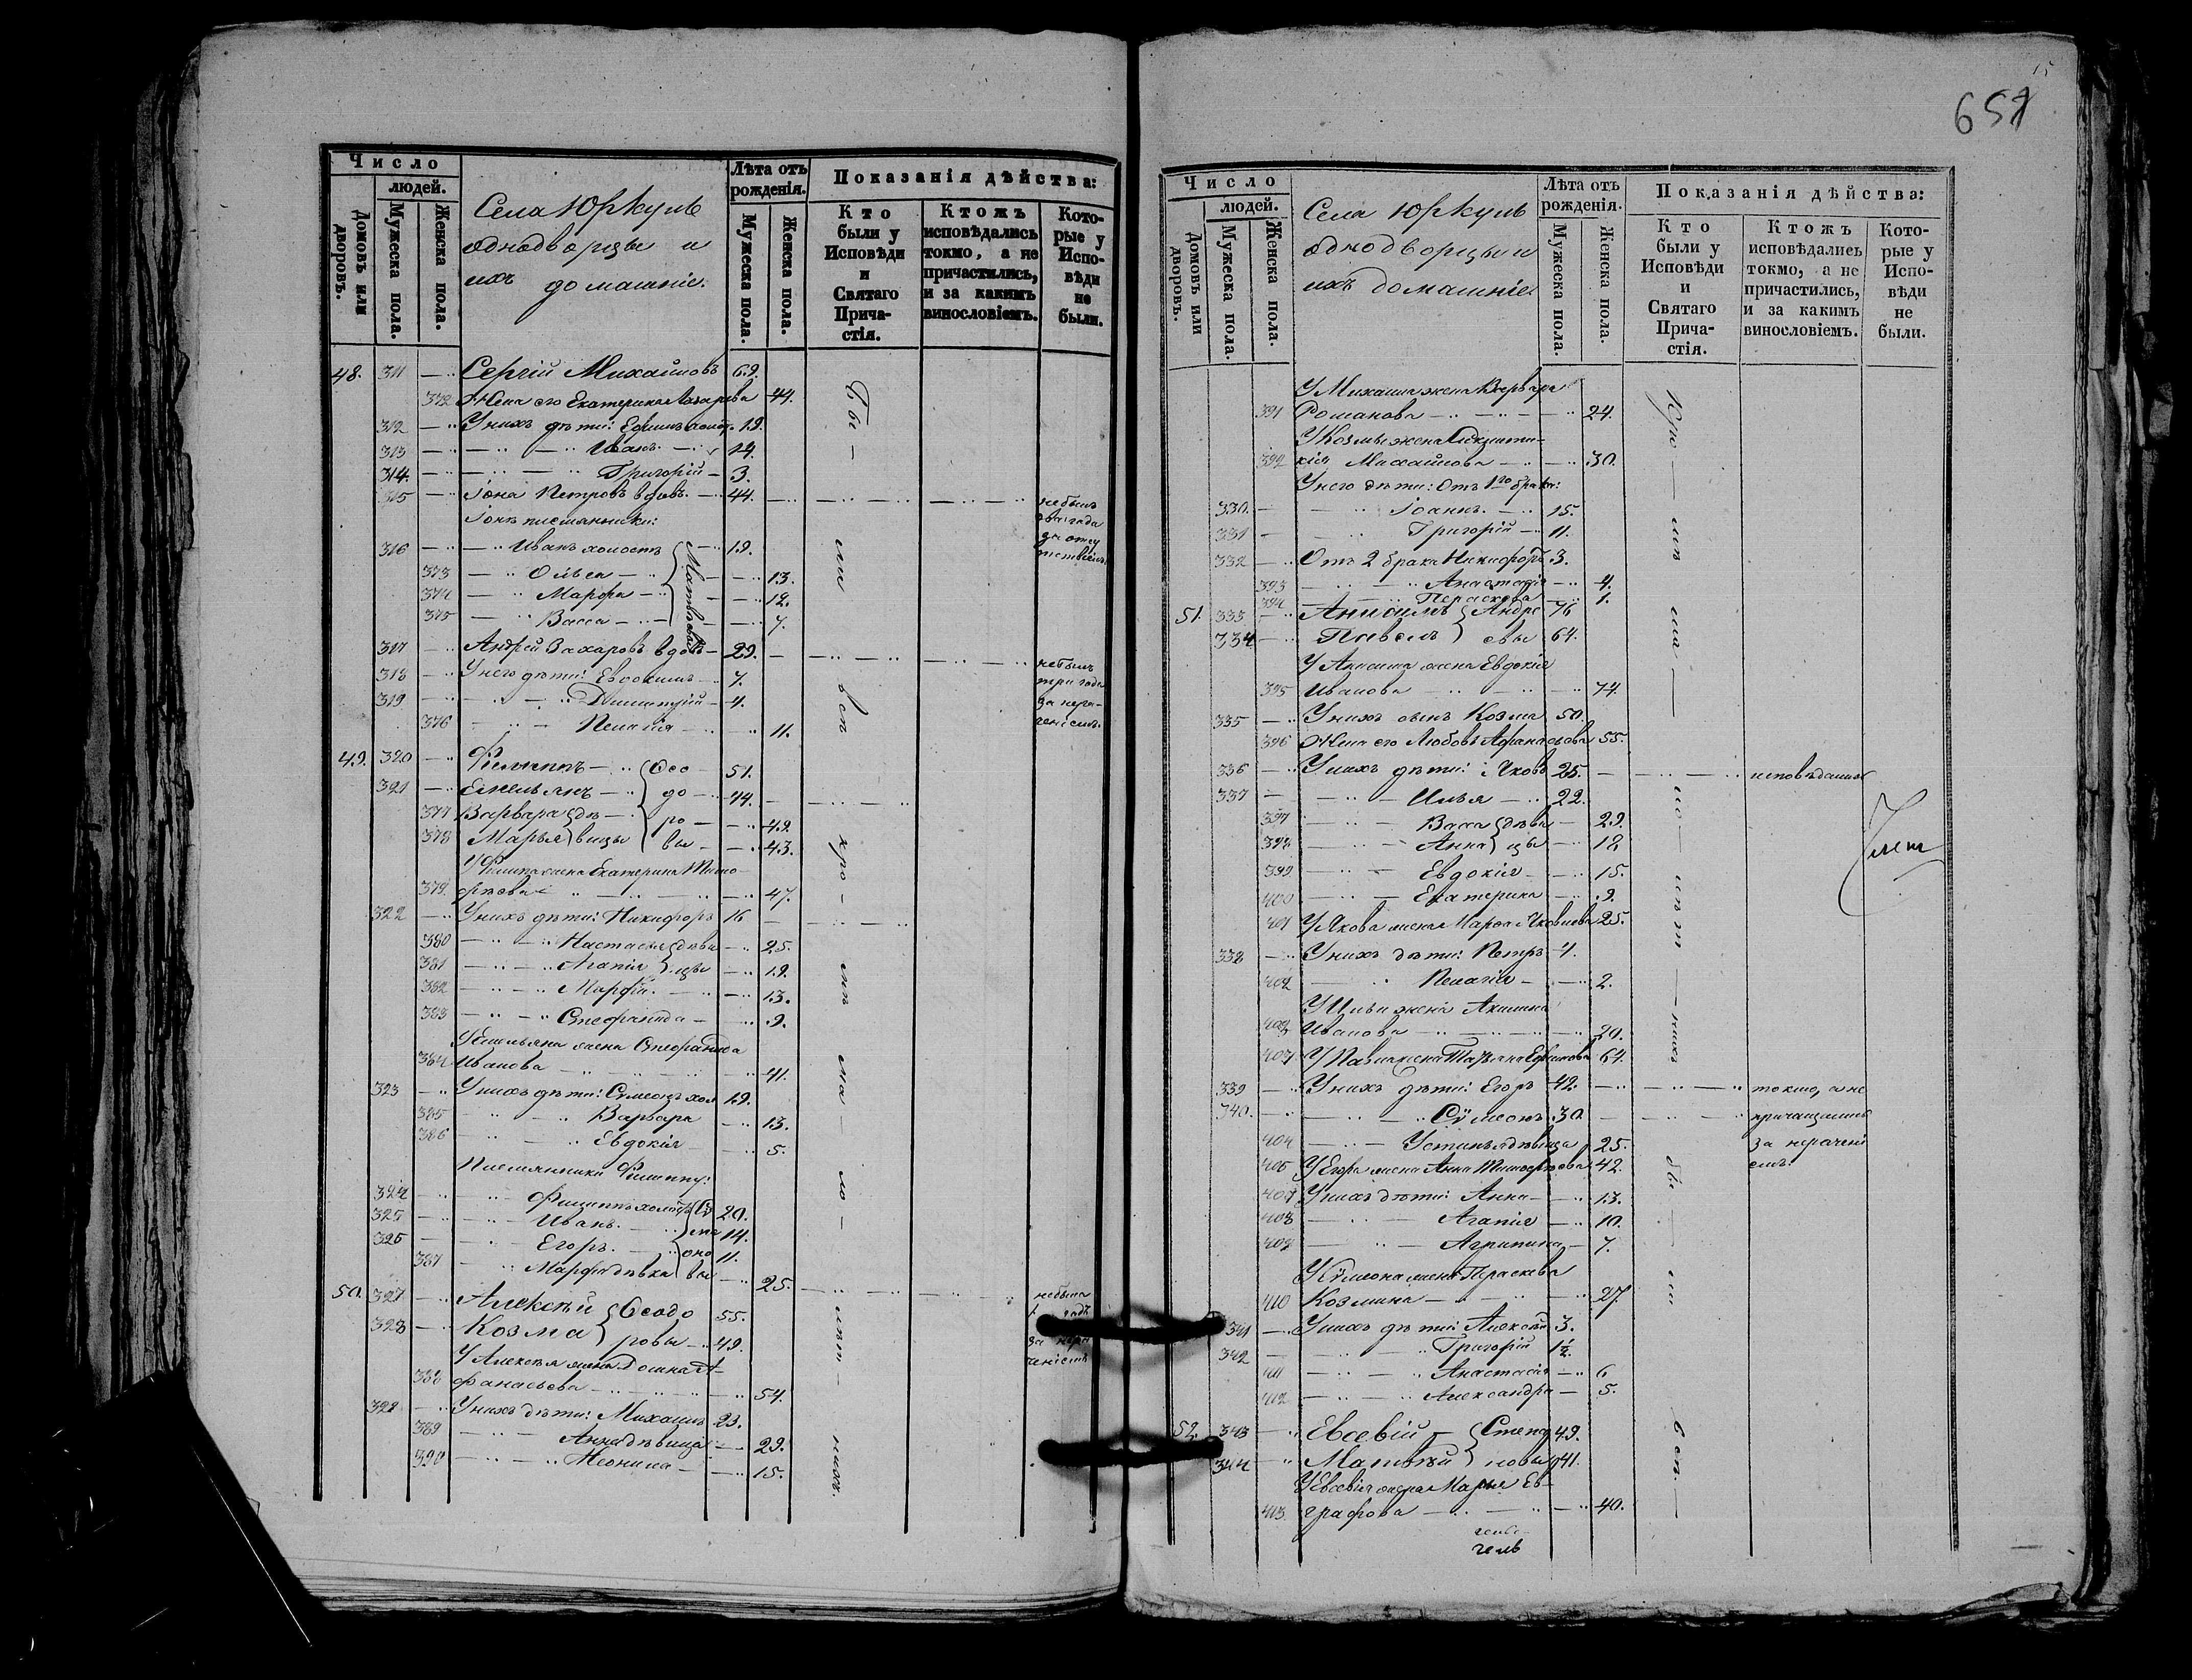 Число
людей.
Домовъ или дворовъ.
Мужеска пола.
Женска пола.
Села Юркуль
однодворцы и
ихъ домашніе.
Лѣта отъ
рожденія.
Мужеска пола.
Женска пола.
Показанія дѣйства:
Кто
были у
Исповѣди
и
Святаго
Прича-
стія.
Ктожъ
исповѣдались
токмо, а не
причастились,
и за какимъ
винословіемъ.
Кото-
рые у
Испо-
вѣди
не
были.
48. 311 Сергій Михайловъ 69.
372 Жена его Екатерина 44.
312 У нихъ дѣти: Ефимъ холос. 19.
313 Иванъ 14.
314. Григорій 3.
315 Іона Петровъ вдовъ 44. небылъ
два года
за отсу
тствіемъ
Іоны племянники:
316 Иванъ холостъ 19.
373 13.
374 Марфа 12.
375 Васса 7.
Матвѣевы
317 Андрей Захаровъ вдовъ 29. небылъ
три года
за нера-
ченіемъ.
318 У него дѣти: Евдокимъ 7.
319 Димитрій 4.
376 Пелагія 11.
49. 320 Филиппъ 51.
321 Емельянъ 44.
377 Варвара дѣ- 49.
378 Марья вицы 43.
Ѳео
до
ро
вы
У Филиппа жена Екатерина Тимо-
379. фѣева 47.
322 У нихъ дѣти: Никифоръ 16
380 Настасья дѣви 25.
381 Агапія цы 19.
382 Марфа 13.
383 Стефанида 9.
У Емельяна жена Стефанида
384 Иванова 41.
323 У нихъ дѣти: Сѵмеонъ хол 19.
385 Варвара 13.
386 Евдокія 5.
Племянники Филиппу:
324 Филиппъ холостъ 20.
325 Иванъ 14.
326 Егоръ 11.
387 Марфа дѣвка 25. небыла
Сѵ
ме
оно
вы
1 годъ
за нера
ченіемъ
50. 327 Алексѣй Ѳеодо 55.
328 Козма ровы 49.
У Алексѣя жена Домна А-
388 фанасьева 54.
328 У нихъ дѣти: Михаилъ 23.
389 Анна дѣвица 29.
390 Неонила 15.
15
651
Число
людей.
Домовъ или дворовъ.
Мужеска пола.
Женска пола.
Села Юркуль
однодворцы и
ихъ домашніе
Лѣта отъ
рожденія.
Мужеска пола.
Женска пола.
Показанія дѣйства:
Кто
были у
Исповѣди
и
Святаго
Прича-
стія.
Ктожъ
исповѣдались
токмо, а не
причастились,
и за какимъ
винословіемъ.
Кото-
рые у
Испо-
вѣди
не
были.
У Михаила жена Варвара
391 Романова 24.
У Козмы жена
392 Михайлова 30.
У него дѣти: Отъ 1го брака:
330. Іоаннъ 15.
331 Григорій 11.
332 Отъ 2 брака Никифоръ 3.
393 Анастасія 4.
394 Параскева 1.
51. 333 Анисимъ Андре 76
334 Павелъ евы 64.
У Анисима жена Евдокія
395 Иванова 74.
335 У нихъ сынъ Козма 50.
396 Жена его Любовь Афанасьева 55.
336 У нихъ дѣти: Яковъ 25. исповѣдались
337 Илья 22.
397 Васса дѣви 29.
398 Анна цы 18
399 Евдокія 15.
400 Екатерина 9.
401 У Якова жена Марфа Яковлева 25.
338 У нихъ дѣти: Петръ 4.
402 Пелагія 2.
У Ильи жена Акилина
403 Иванова 20.
407 У Павла жена Татьяна Ефимова 64.
339 У нихъ дѣти: Егоръ 42. токмо, а не
340. Сѵмеонъ 30 причащались
404 Устинья дѣвица 25. за нерачені
405 У Егора жена Анна Тимофѣева 42. емъ.
407 У нихъ дѣти: Анна 13.
408 Агапія 10.
409 Агрипина 7.
У Сѵмеона жена Параскева
410 Козмина 27.
341 У нихъ дѣти: Алексѣй 3.
342 Григорій 1½.
411 Анастасія 6
412 Александра 5.
52. 343 Евсевій Степа 49.
344 Матвѣй новы 41.
У Евсевія жена Марья Ев-
413. графова 40.